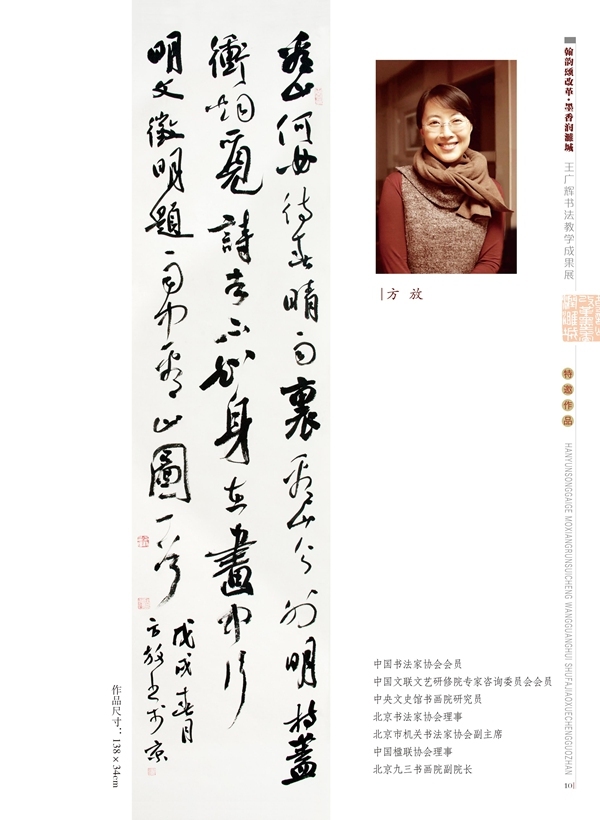 看山何必待春晴雨裏看山分外明持蓋
衝烟覓詩去不知身在畫中行
明文徵明題雨中看山圖一首
戊戌春月
方放书於京
作品尺寸：138×34cm
方放
中国书法家协会会员
中国文联文艺研修院专家咨询委员会会员
中央文史馆书画院研究员
北京书法家协会理事
北京市机关书法家协会副主席
中国楹联协会理事
北京九三书画院副院长
翰韵颂改革·墨香润濉城
王广辉书法教学成果展
特邀作品
HANYUNSONGGAIGE MOXIANGRUNSUICHENG WANGGUANGHUI SHUFAJIAOXUECHENGGUOZHAN